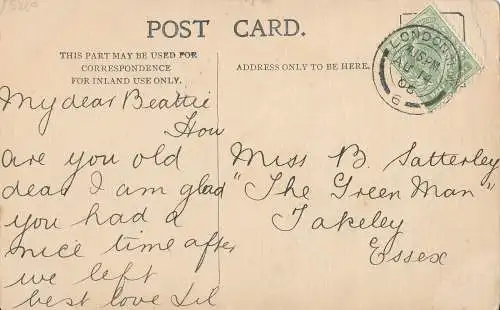 POST CARD.
THIS PART MAY BE USED FOR
CORRESPONDENCE
FOR INLAND USE ONLY.
ADDRESS ONLY TO BE HERE.
LONDON. N.
4.15 PM
AU 14
06
6
My dear Beattie
How
are you old
dear I am glad
you had a
nice time after
we left
best love Lil
Miss B. Satterley
"The Green Man"
Takeley
Essex